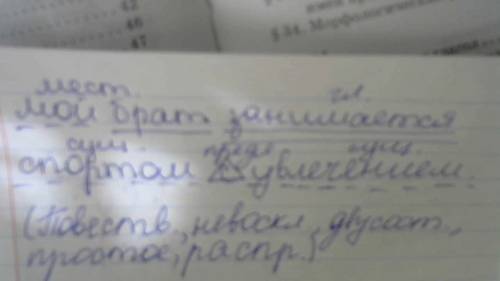 42
46
47
§ 34. Морфологически
мест. гл.
мой брат занимается
сущ. предл. сущ.
спортом с увлечением.
(Повеств., невоскл., двусост.,
простое, распр.)